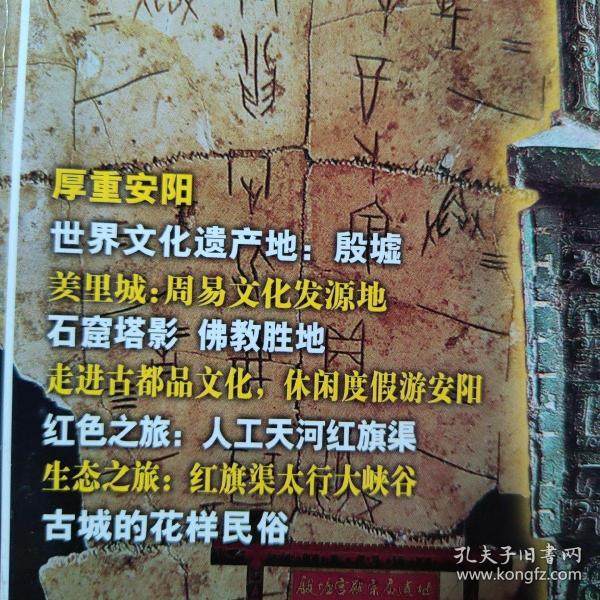 厚重安阳
世界文化遗产地：殷墟
羑里城：周易文化发源地
石窟塔影 佛教胜地
走进古都品文化，休闲度假游安阳
红色之旅：人工天河红旗渠
生态之旅：红旗渠太行大峡谷
古城的花样民俗
孔夫子旧书网
www.kongfz.com